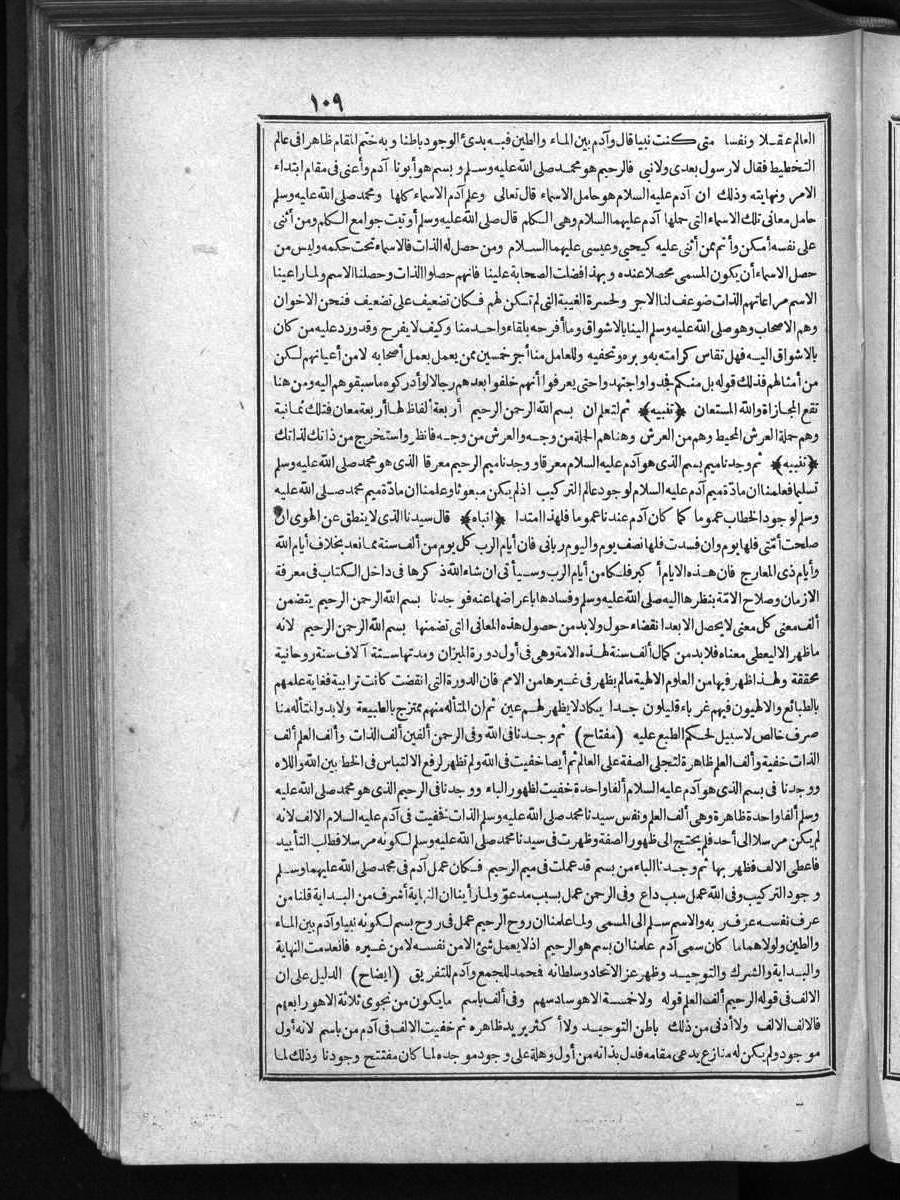 ١٠٩
العالم عقلا ونفسا متى كنت نبيا قال وآدم بين الماء والطين فبه بدئ الوجود باطنا وبه ختم المقام ظاهرا فى عالم
التخطيط فقال لا رسول بعدى ولا نبى فالرحيم هو محمد صلى الله عليه وسلم وبسم هو أبونا آدم وأعنى فى مقام ابتداء
الامر ونهايته وذلك ان آدم عليه السلام هو حامل الاسماء قال تعالى وعلم آدم الاسماء كلها ومحمد صلى الله عليه وسلم
حامل معانى تلك الاسماء التى حملها آدم عليهما السلام وهى الكلم قال صلى الله عليه وسلم أوتيت جوامع الكلم ومن أثنى
على نفسه أمكن وأتم ممن أثنى عليه كيحيى وعيسى عليهما السلام ومن حصل له الذات فالاسماء تحت حكمه وليس من
حصل الاسماء أن يكون المسمى محصلا عنده وبهذا فضلت الصحابة علينا فانهم حصلوا الذات وحصلنا الاسم ولما راعينا
الاسم مراعاتهم الذات ضوعف لنا الاجر ولحسرة الغيبة التى لم تكن لهم فكان تضعيف على تضعيف فنحن الاخوان
وهم الاصحاب وهو صلى الله عليه وسلم الينا بالاشواق وما أفرحه بلقاء واحد منا وكيف لا يفرح وقد ورد عليه من كان
بالاشواق اليه فهل تقاس كرامته به وبره وتحفيه وللعامل منا أجر خمسين ممن يعمل بعمل أصحابه لا من أعيانهم لكن
من أمثالهم فذلك قوله بل منكم فجدوا واجتهدوا حتى يعرفوا أنهم خلفوا بعدهم رجالا لو أدركوه ما سبقوهم اليه ومن هنا
تقع المجازاة والله المستعان ﴿تنبيه﴾ ثم لتعلم ان بسم الله الرحمن الرحيم أربعة ألفاظ لها أربعة معان فتلك ثمانية
وهم حملة العرش المحيط وهم من العرش وهنا هم الحملة من وجه والعرش من وجه فانظر واستخرج من ذاتك لذاتك
﴿تنبيه﴾ ثم وجدنا ميم بسم الذى هو آدم عليه السلام معرقا ووجدنا ميم الرحيم معرقا الذى هو محمد صلى الله عليه وسلم
تسليما فعلمنا ان مادّة ميم آدم عليه السلام لوجود عالم التركيب اذ لم يكن مبعوثا وعلمنا ان مادّة ميم محمد صلى الله عليه
وسلم لوجود الخطاب عموما كما كان آدم عندنا عموما فلهذا امتدا ﴿انباه﴾ قال سيدنا الذى لا ينطق عن الهوى ان
صلحت أمّتى فلها يوم وان فسدت فلها نصف يوم واليوم ربانى فان أيام الرب كل يوم من ألف سنة مما نعد بخلاف أيام الله
وأيام ذى المعارج فان هذه الايام أكبر فلكا من أيام الرب وسيأتى ان شاء الله ذكرها فى داخل الكتاب فى معرفة
الازمان وصلاح الامّة بنظرها اليه صلى الله عليه وسلم وفسادها باعراضها عنه فوجدنا بسم الله الرحمن الرحيم يتضمن
ألف معنى كل معنى لا يحصل الا بعد انقضاء حول ولا بد من حصول هذه المعانى التى تضمنها بسم الله الرحمن الرحيم لانه
ما ظهر الا ليعطى معناه فلا بد من كمال ألف سنة لهذه الامة وهى فى أول دورة الميزان ومدتها ستة آلاف سنة روحانية
محققة ولهذا ظهر فيها من العلوم الالهية ما لم يظهر فى غيرها من الامم فان الدورة التى انقضت كانت ترابية فغاية علمهم
بالطبائع والالهيون فيهم غرباء قليلون جدا يكاد لا يظهر لهم عين ثم ان المتأله منهم ممتزج بالطبيعة ولا بد والمتأله منا
صرف خالص لا سبيل لحكم الطبع عليه (مفتاح) ثم وجدنا فى الله وفى الرحمن ألفين ألف الذات وألف العلم ألف
الذات خفية وألف العلم ظاهرة لتجلى الصفة على العالم ثم أيضا خفيت فى الله ولم تظهر لرفع الالتباس فى الخط بين الله واللاه
ووجدنا فى بسم الذى هو آدم عليه السلام ألفا واحدة خفيت لظهور الباء ووجدنا فى الرحيم الذى هو محمد صلى الله عليه
وسلم ألفا واحدة ظاهرة وهى ألف العلم ونفس سيدنا محمد صلى الله عليه وسلم الذات فخفيت فى آدم عليه السلام الالف لانه
لم يكن مرسلا الى أحد فلم يحتج الى ظهور الصفة وظهرت فى سيدنا محمد صلى الله عليه وسلم لكونه مرسلا فطلب التأييد
فاعطى الالف فظهر بها ثم وجدنا الباء من بسم قد عملت فى ميم الرحيم فكان عمل آدم فى محمد صلى الله عليهما وسلم
وجود التركيب وفى الله عمل سبب داع وفى الرحمن عمل بسبب مدعوّ ولما رأينا ان النهاية أشرف من البداية قلنا من
عرف نفسه عرف ربه والاسم سلم الى المسمى ولما علمنا ان روح الرحيم عمل فى روح بسم لكونه نبيا وآدم بين الماء
والطين ولولا هما ما كان سمى آدم علمنا ان بسم هو الرحيم اذ لا يعمل شئ الا من نفسه لا من غيره فانعدمت النهاية
والبداية والشرك والتوحيد وظهر عز الاتحاد وسلطانه فمحمد للجمع وآدم للتفريق (ايضاح) الدليل على ان
الالف فى قوله الرحيم ألف العلم قوله ولا خمسة الا هو سادسهم وفى ألف باسم ما يكون من نجوى ثلاثة الا هو رابعهم
فالالف الالف ولا أدنى من ذلك باطن التوحيد ولا أكثر يريد ظاهره ثم خفيت الالف فى آدم من باسم لانه أول
موجود ولم يكن له منازع يدعى مقامه فدل بذاته من أول وهلة على وجود موجده لما كان مفتتح وجودنا وذلك لما